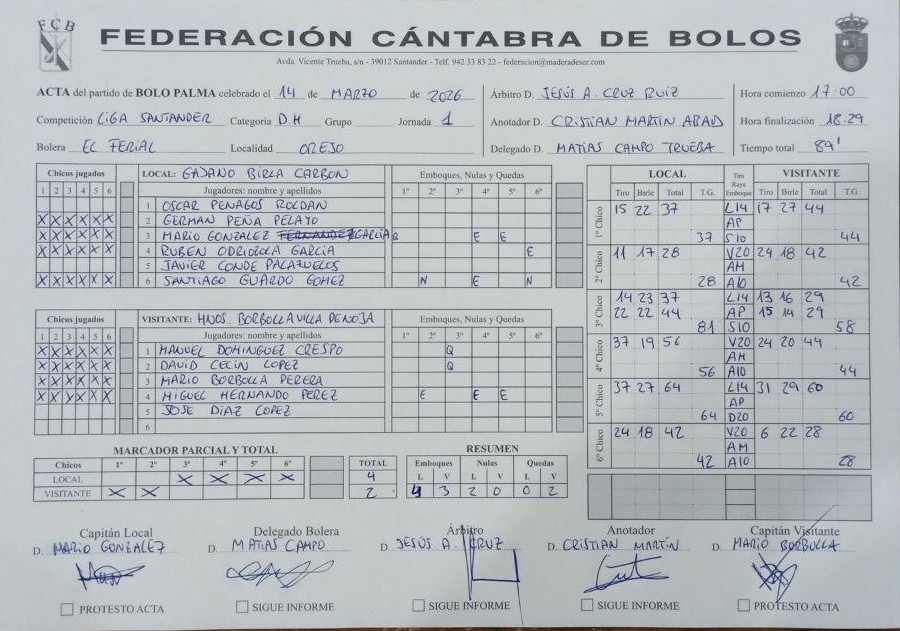 FCB
FEDERACIÓN CÁNTABRA DE BOLOS
Avda. Vicente Trueba, s/n - 39012 Santander - Telf. 942 33 83 22 - federacion@maderadeser.com
ACTA del partido de BOLO PALMA celebrado el 14 de MARZO de 2026
Competición LIGA SANTANDER Categoría D.H Grupo Jornada 1
Bolera EL FERIAL Localidad OREJO
Árbitro D. JESÚS A. CRUZ RUIZ
Anotador D. CRISTIAN MARTIN ABAD
Delegado D. MATIAS CAMPO TRUEBA
Hora comienzo 17:00
Hora finalización 18:29
Tiempo total 89'
Chicos jugados LOCAL: GAJANO BIRLA CARBON Emboques, Nulas y Quedas
1 2 3 4 5 6 Jugadores: nombre y apellidos 1º 2º 3º 4º 5º 6º
1 OSCAR PENAGOS ROLDAN
X X X X X X 2 GERMAN PEÑA PELAYO
X X X X X X 3 MARIO GONZALEZ GARCIA E E
X X X X X X 4 RUBEN ODRIOZOLA GARCIA E
5 JAVIER CONDE PALAZUELOS
X X X X X X 6 SANTIAGO GUARDO GOMEZ N E N
Chicos jugados VISITANTE: HNOS. BORBOLLA VILLA DE NOJA Emboques, Nulas y Quedas
1 2 3 4 5 6 Jugadores: nombre y apellidos 1º 2º 3º 4º 5º 6º
X X X X X X 1 MANUEL DOMINGUEZ CRESPO Q
X X X X X X 2 DAVID CECIN LOPEZ Q
X X X X X X 3 MARIO BORBOLLA PERERA
X X X X X X 4 MIGUEL HERNANDO PEREZ E E E
5 JOSE DIAZ LOPEZ
6
MARCADOR PARCIAL Y TOTAL
Chicos 1º 2º 3º 4º 5º 6º TOTAL
LOCAL X X X X 4
VISITANTE X X 2
RESUMEN
Emboques Nulas Quedas
L V L V L V
4 3 2 0 0 2
LOCAL Tiro Raya Emboque VISITANTE
Tiro Birle Total T.G. Tiro Birle Total T.G.
1º Chico 15 22 37 L14 17 27 44
AP
37 S10 44
2º Chico 11 17 28 V20 24 18 42
AM
28 A10 42
3º Chico 14 23 37 L14 13 16 29
22 22 44 AP 15 14 29
81 S10 58
4º Chico 37 19 56 V20 24 20 44
AM
56 A10 44
5º Chico 37 27 64 L14 31 29 60
AP
64 D20 60
6º Chico 24 18 42 V20 6 22 28
AM
42 A10 28
Capitán Local Delegado Bolera Árbitro Anotador Capitán Visitante
D. MARIO GONZALEZ D. MATIAS CAMPO D. JESÚS A. CRUZ D. CRISTIAN MARTÍN D. MARIO BORBOLLA
PROTESTO ACTA SIGUE INFORME SIGUE INFORME SIGUE INFORME PROTESTO ACTA